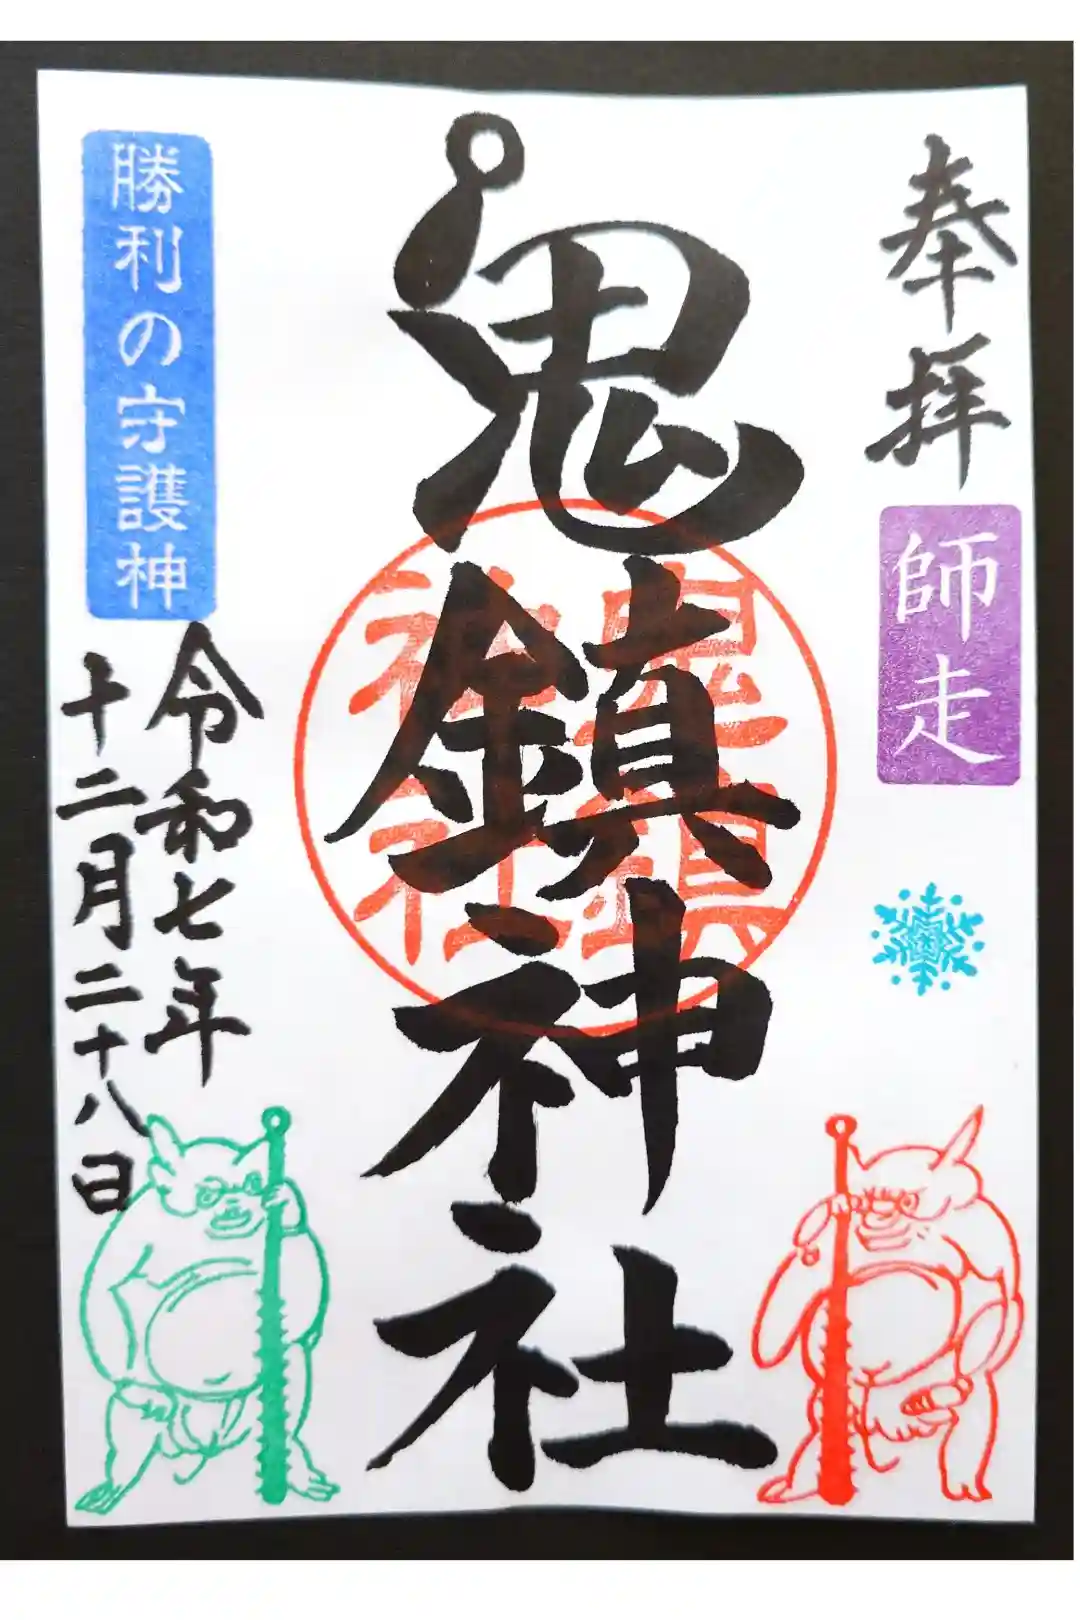 奉拝
師走
鬼鎮神社
鬼鎮
神社
勝利の守護神
令和七年
十二月二十八日